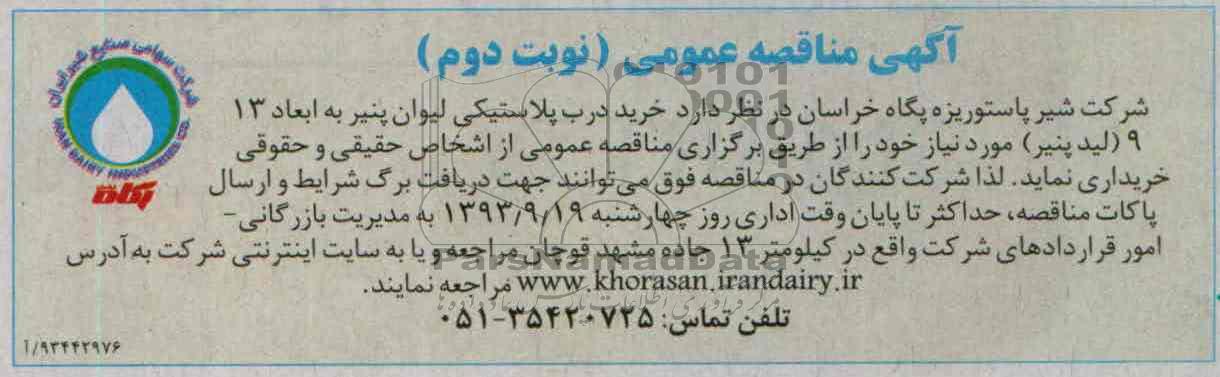 آگهی مناقصه عمومی (نوبت دوم)
شرکت سهامی صنایع شیر ایران
IRAN DAIRY INDUSTRIES CO.
پگاه
شرکت شیر پاستوریزه پگاه خراسان در نظر دارد خرید درب پلاستیکی لیوان پنیر به ابعاد ۱۳
۹ (لید پنیر) مورد نیاز خود را از طریق برگزاری مناقصه عمومی از اشخاص حقیقی و حقوقی
خریداری نماید. لذا شرکت کنندگان در مناقصه فوق می‌توانند جهت دریافت برگ شرایط و ارسال
پاکات مناقصه، حداکثر تا پایان وقت اداری روز چهارشنبه ۱۳۹۳/۹/۱۹ به مدیریت بازرگانی-
امور قراردادهای شرکت واقع در کیلومتر ۱۳ جاده مشهد قوچان مراجعه و یا به سایت اینترنتی شرکت به آدرس
www.khorasan.irandairy.ir مراجعه نمایند.
تلفن تماس: ۳۵۴۲۰۷۲۵-۰۵۱
۹۳۴۴۲۹۷۶/آ
ParsNamadData